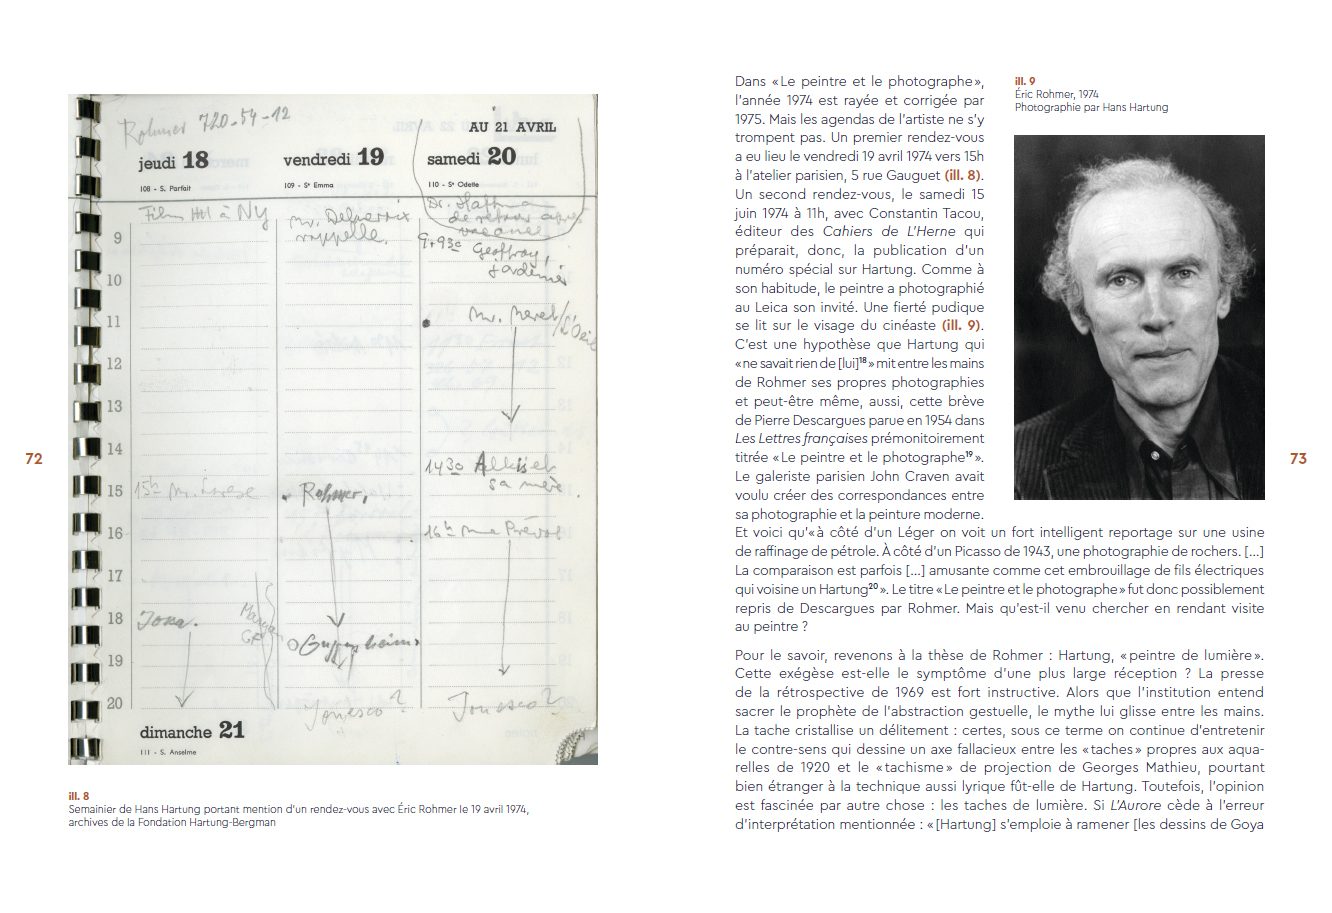 72
Rohmer 720-54-12
AU 21 AVRIL
jeudi 18
vendredi 19
samedi 20
108 - S. Parfait
109 - Sᵉ Emma
110 - Sᵉ Odette
Film HH à NY
mr. Delacroix
rappelle.
Dr. Hoffman
de retour après
vacances
9
9+930 Geoffroy,
jardinier
10
11
12
13
14
1430
sa mère
15
15h Mr.
Rohmer,
16
16h
17
18
19
20
Ionesco?
Ionesco?
dimanche 21
111 - S. Anselme
ill. 8
Semainier de Hans Hartung portant mention d'un rendez-vous avec Éric Rohmer le 19 avril 1974,
archives de la Fondation Hartung-Bergman
Dans « Le peintre et le photographe »,
l'année 1974 est rayée et corrigée par
1975. Mais les agendas de l'artiste ne s'y
trompent pas. Un premier rendez-vous
a eu lieu le vendredi 19 avril 1974 vers 15h
à l'atelier parisien, 5 rue Gauguet (ill. 8).
Un second rendez-vous, le samedi 15
juin 1974 à 11h, avec Constantin Tacou,
éditeur des Cahiers de L'Herne qui
préparait, donc, la publication d'un
numéro spécial sur Hartung. Comme à
son habitude, le peintre a photographié
au Leica son invité. Une fierté pudique
se lit sur le visage du cinéaste (ill. 9).
C'est une hypothèse que Hartung qui
« ne savait rien de [lui]¹⁸ » mit entre les mains
de Rohmer ses propres photographies
et peut-être même, aussi, cette brève
de Pierre Descargues parue en 1954 dans
Les Lettres françaises prémonitoirement
titrée « Le peintre et le photographe¹⁹ ».
Le galeriste parisien John Craven avait
voulu créer des correspondances entre
sa photographie et la peinture moderne.
Et voici qu'« à côté d'un Léger on voit un fort intelligent reportage sur une usine
de raffinage de pétrole. À côté d'un Picasso de 1943, une photographie de rochers. [...]
La comparaison est parfois [...] amusante comme cet embrouillage de fils électriques
qui voisine un Hartung²⁰ ». Le titre « Le peintre et le photographe » fut donc possiblement
repris de Descargues par Rohmer. Mais qu'est-il venu chercher en rendant visite
au peintre ?
Pour le savoir, revenons à la thèse de Rohmer : Hartung, « peintre de lumière ».
Cette exégèse est-elle le symptôme d'une plus large réception ? La presse
de la rétrospective de 1969 est fort instructive. Alors que l'institution entend
sacrer le prophète de l'abstraction gestuelle, le mythe lui glisse entre les mains.
La tache cristallise un délitement : certes, sous ce terme on continue d'entretenir
le contre-sens qui dessine un axe fallacieux entre les « taches » propres aux aqua-
relles de 1920 et le « tachisme » de projection de Georges Mathieu, pourtant
bien étranger à la technique aussi lyrique fût-elle de Hartung. Toutefois, l'opinion
est fascinée par autre chose : les taches de lumière. Si L'Aurore cède à l'erreur
d'interprétation mentionnée : « [Hartung] s'emploie à ramener [les dessins de Goya
ill. 9
Éric Rohmer, 1974
Photographie par Hans Hartung
73